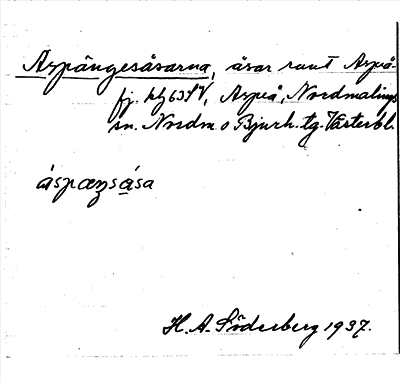 Aspängesåsarna, åsar runt Aspeå-
fj. htg 63 SV, Aspeå, Nordmalings
sn. Nordm. o Bjurh. tg. Västerbl.
áspæŋsåsa
H. A. Söderberg 1937.